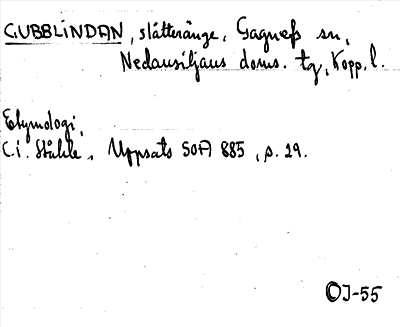 GUBBLINDAN, slåtteränge, Gagnefs sn,
Nedansiljans doms. tg, Kopp. l.
Etymologi,
C.I. Ståhle, Uppsats SOFI 885, s. 29.
OJ-55